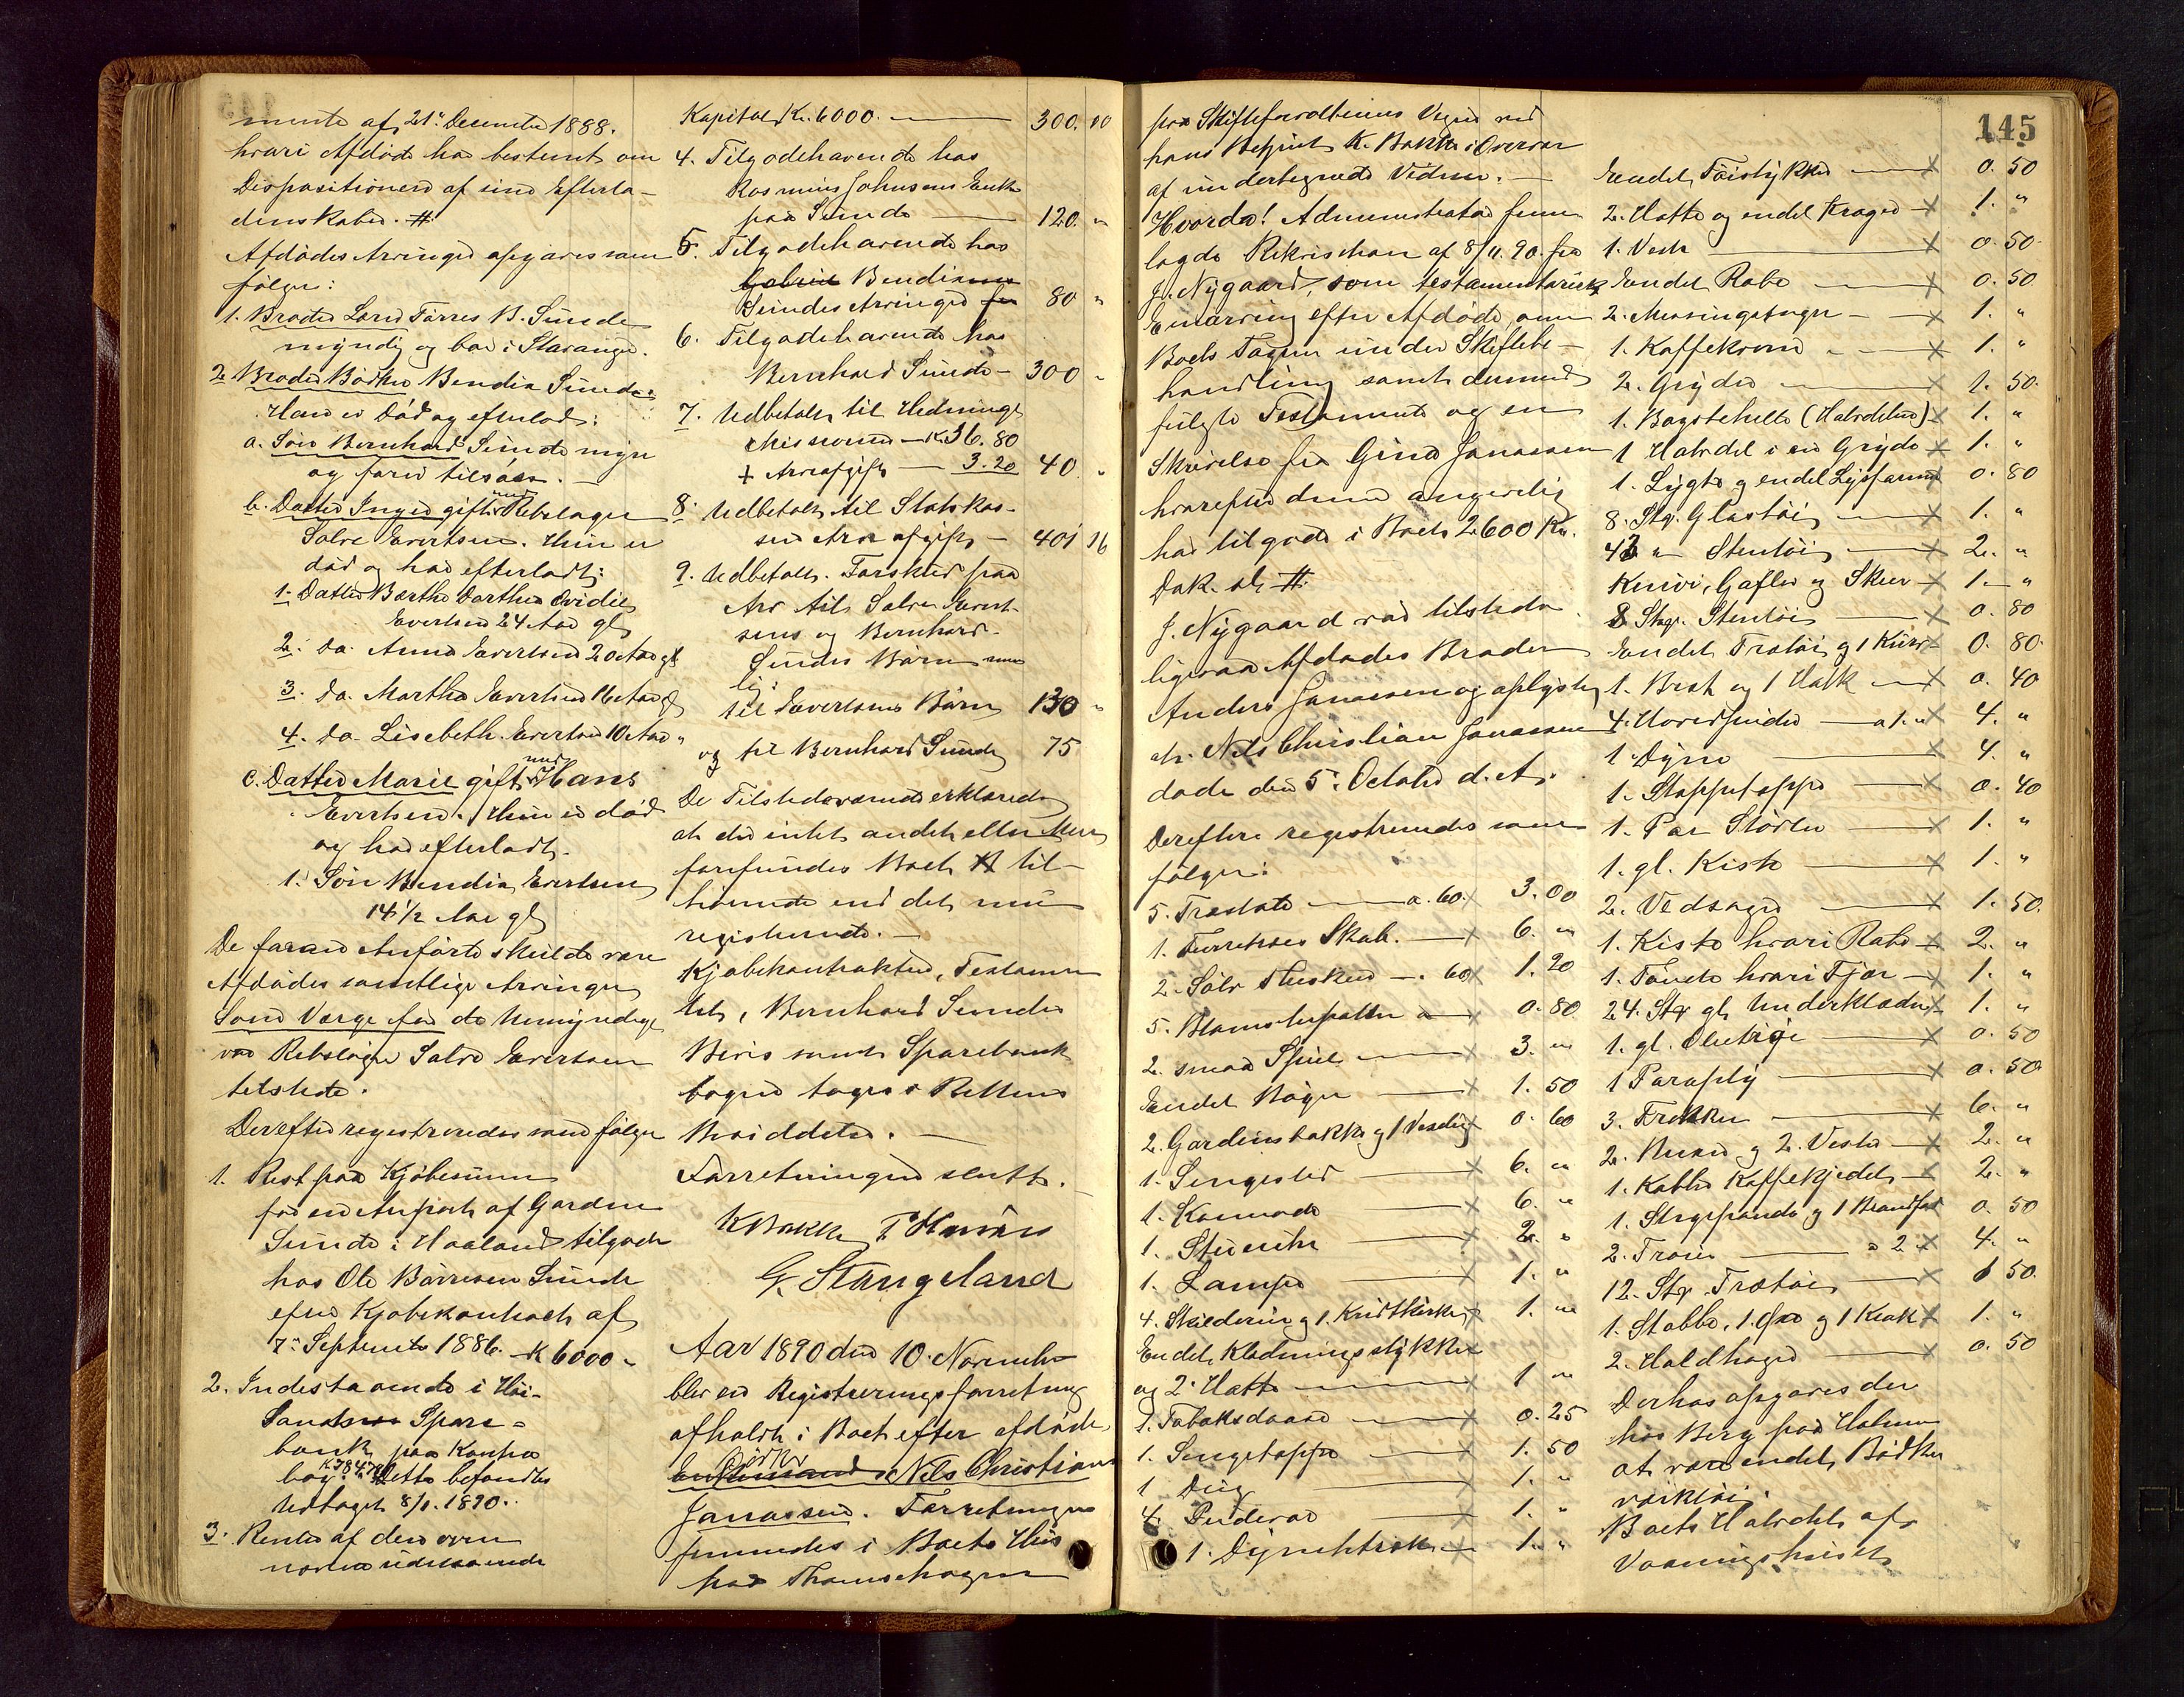 mente af 21de December 1888.
hvori Afdøde har bestemt om
Dispositionen af sine Efterla-
denskaber. #
Afdødes Arvinger opgaves som
følger:
1. Broder Lars Tørres B. Sunde
myndig og bor i Stavanger.
2. Broder Bødker Bendix Sunde.
Han er død og efterlod:
a. Søn Bernhard Sunde myn
og farer tilsøes.
b. Datter Inger gift med Rebslager
Salve Evertsen. Hun er
død og har efterladt:
1. Datter Berthe Dorthea Ovidie
Evertsen 24 Aar gl
2. do. Anna Evertsen 20 Aar gl
3. do. Martha Evertsen 16 Aar gl
4. do. Lisebeth Evertsen 10 Aar "
c. Datter Marie gift med Hans
Evertsen. Hun er død
og har efterladt.
1. Søn Bendix Evertsen
14 1/2 Aar gl
De foran Anførte skulde være
Afdødes samtlige Arvinger
Som Værge for de Umyndige
var Rebslager Salve Evertsen
tilstede.
Derefter registreredes som følger
1. Rest paa Kjøbesum
for en Anpart af Garden
Sunde i Haaland tilgode
hos Ole Børresen Sunde
efter Kjøbekontrakt af
7de September 1886. - K 6000 -
2. Indestaaende i Høi-
Spare-
bank paa Kontra
bog K 784,74 Dette befandtes
Udtaget 8/1. 1890.
3. Rente af den oven
nævnte udestaaende
Kapital Kr. 6000. — 300. 00
4. Tilgodehavende hos
Rasmus Johnsens Enke
paa Sunde — 120. "
5. Tilgodehavende hos
Gabriel Bendix
Sundes Arvinger 80 "
6. Tilgodehavende hos
Bernhard Sunde - 300 "
7. Udbetalt til Hednings
Missionen - K 36. 80
+ Arveafgift — 3.20 40 "
8. Udbetalt til Statskas-
sen Arveafgift - 401 16
9. Udbetalt Forskud paa
Arv til Salve Evert-
sens og Bernhard
Sundes Børn nem
lig:
til Evertsens Børn 130 "
og til Bernhard Sunde 75
De Tilstedeværende erklærede
at der intet andet eller mere
forefandtes Boet til-
hørende end det nu
registrerede. —
Kjøbekontrakten, Testamen
tet, Bernhard Sundes
Bevis samt Sparebank
bogen toges i Rettens
Besiddelse. —
Forretningen sluttet.
K Bakke T Husebø
G. Stangeland
Aar 1890 den 10. November
blev en Registreringsforretning
afholdt i Boet efter afdøde
Bødker Nils Christian
Jonassen. Forretningen
fremmedes i Boets Hus
paa Thomsehagen
fra Skifteforvalterens Vegne ved
hans Betjent K. Bakke i Overvær
af undertegnede Vidner. —
Hvorda! Administrator frem
lagde Rekvisition af 8/11. 90. fra
J. Nygaard, som testamentarisk
Enarving efter Afdøde, om
Boets Tagen under Skiftebe-
handling samt dermed
fulgte Testament og en
Skrivelse fra Gina Jonassen
hvorefter denne angivelig
har tilgode i Boet 2600 Kr.
Dok. al. #
J. Nygaard var tilstede
ligesaa Afdødes Broder
Anders Jonassen og oplyste
at Nils Christian Jonassen
døde den 5te October d. A.
Derefter registreredes som
følger:
5. Træstole — a. 60. x 3. 00
1. Fyrretræes Skab. — x 6. "
2. Sølv Theskeer — . 60 x 1. 20
5. Blomsterpotter a — 0. 80
2. smaa Speil — x 3. "
Endel Bøger — x 1. 50
2. Gardinsbakker og 1 x 0. 60
1. Sengested — x 6. "
1. Komode — x 6. "
1. Stueuhr — x 2. "
1. Lampe — x 1. "
4. Skilderier og 1 x 1. "
Endel Klædningsstykker
og 2. Hatte — 1 "
1. Tobaksdaase — x 0. 25
1. Sengetæppe — x 1. 50
1 Dug — 1. "
4. Puder — x 1. "
1. — x 1. "
145
Endel Tøistykker — x 0. 50
2. Hatte og endel Krager - x 1. "
1. Vest — x 0. 50
Endel Reb — x 0. 50
2. Messingstager — x 1. "
1. Kaffekværn — x 1. "
2. Gryder — x 1. 50
1. Bagstehelle (Halvdelen) x 1. "
1 Halvdel i en Gryde x 1. "
1. Lygte og endel Lysformer x 0. 80
8. Stkr. Glastøi — x 1. "
42 " Stentøi — x 2. "
Knive, Gafler og Skeer - x 1 — "
8 Stkr. Stentøi — x 0. 80
Endel Trætøi og 1 Kurv x 0. 80
1. og 1 — x 0. 40
4. Hovedpuder — a 1. " x 4. "
1 Dyne — x 4. "
1. Stoppetæppe — x 0. 40
1. Par Støvler — x 1. "
1. gl. Kiste — x 1. "
2. Vedsager — x 1. 50
1. Kiste hvori Reb — x 2. "
1. Tønde hvori Fjær — x 1. "
24. Stkr gl. Underklæder x 1. "
1. gl. Olietrøie — x 0. 50
1 Paraply — x 0. 50
3. Frakker — x 6. "
2. Buxer og 2. Veste — x 2. "
1. Kobber Kaffekjedel — x 2. "
1. Stegepande og 1 x 0. 50
2. Trøier — a 2. " x 4. "
12. Stkr. Trætøi — x 1 50
1. Stabbe, 1. Øxe og 1 Krak x 1. "
2. — x 0. 50
Derhos opgaves der
hos Berg paa Holmen
at være endel Bødker
værktøi.
Boets Halvdel af
Vaaningshuset